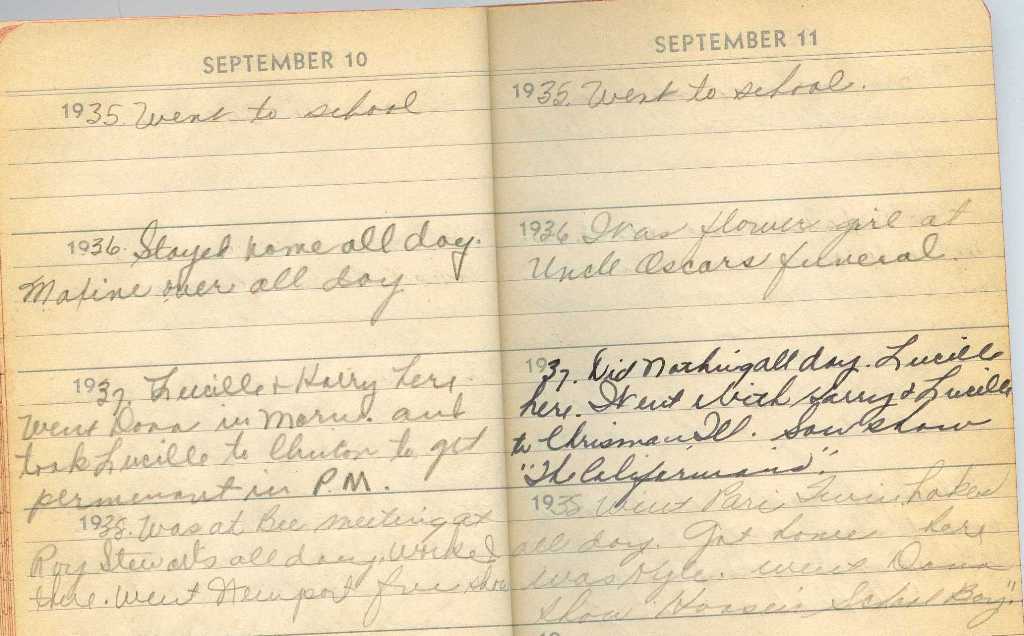 SEPTEMBER 10
1935. Went to school
1936. Stayed home all day.
Maxine over all day
1937. Lucille & Harry here.
Went Dana in Morn. and
took Lucille to Clinton to get
permenant in P.M.
1938. Was at Bee meeting at
Roy Stewarts all day. Worked
there. Went Newport free show
SEPTEMBER 11
1935. Went to school.
1936 I was flower girl at
Uncle Oscars funeral.
1937. Did Nothing all day. Lucille
here. Went with Harry & Lucille
to Chrisman Ill. Saw show
"The Californians".
1938 Went Paris
all day. Got home here
was Kyle. went Dana
show "Hoosier School Boy".
19